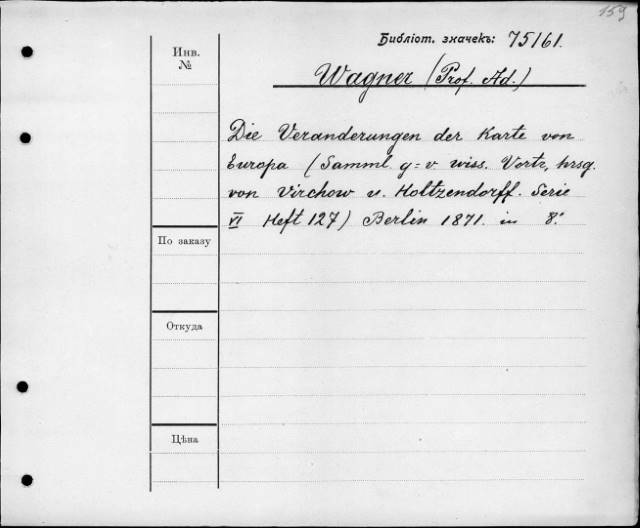 159
Библіот. значекъ: 75161.
Инв.
№
Wagner (Prof. Ad.)
Die Veranderungen der Karte von
Europa (Samml g=v. wiss. Vortr, hrsg.
von Virchow u. Holtzendorff. Serie
VI Heft 127) Berlin 1871. in 8.°
По заказу
Откуда
Цѣна